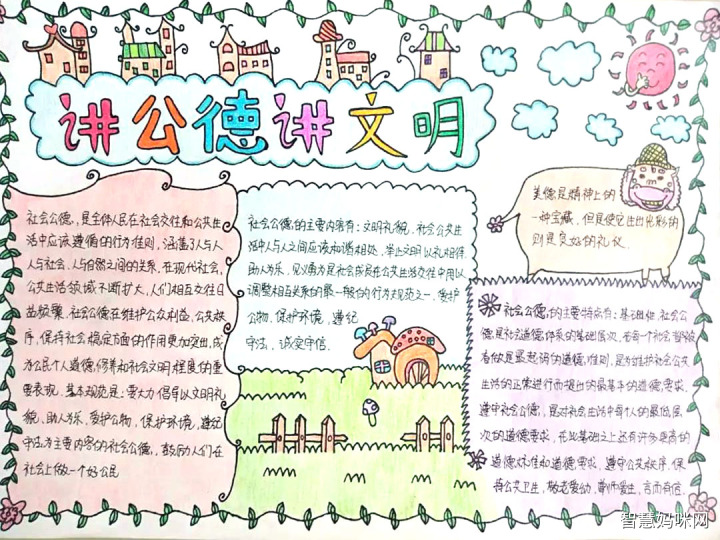 讲公德讲文明
社会公德，是全体人民在社会交往和公共生
活中应该遵循的行为准则，涵盖了人与人
人与社会、人与自然之间的关系，在现代社会，
公共生活领域不断扩大，人们相互交往日
益频繁。社会公德在维护公众利益，公共秩
序，保持社会稳定方面的作用更加突出，成
为公民个人道德修养和社会文明程度的重
要表现。基本规范是：要大力倡导以文明礼
貌，助人为乐，爱护公物，保护环境，遵纪
守法为主要内容的社会公德，鼓励人们在
社会上做一个好公民
社会公德的主要内容有：文明礼貌，社会公共生
活中人与人之间应该和谐相处，举止文明以礼相待
助人为乐，见义勇为是社会成员在公共生活交往中用以
调整相互关系的最一般的行为规范之一，爱护
公物，保护环境，遵纪
守法，诚实守信.
美德是精神上的
一种宝藏，但是使它生出光彩的
则是良好的礼仪
社会公德的主要特点有：基础性，社会公
德是社会道德体系的基础层次，在每一个社会
看做是最起码的道德准则，是为维护社会公共
生活的正常进行而提出的最基本的道德要求，
遵守社会公德，是对社会生活中每个人的最低层
次的道德要求，在此基础之上还有许多更高的
道德水准和道德要求，遵守公共秩序，保
持公共卫生，敬老爱幼，尊师爱生，言而有信.
智慧妈咪网